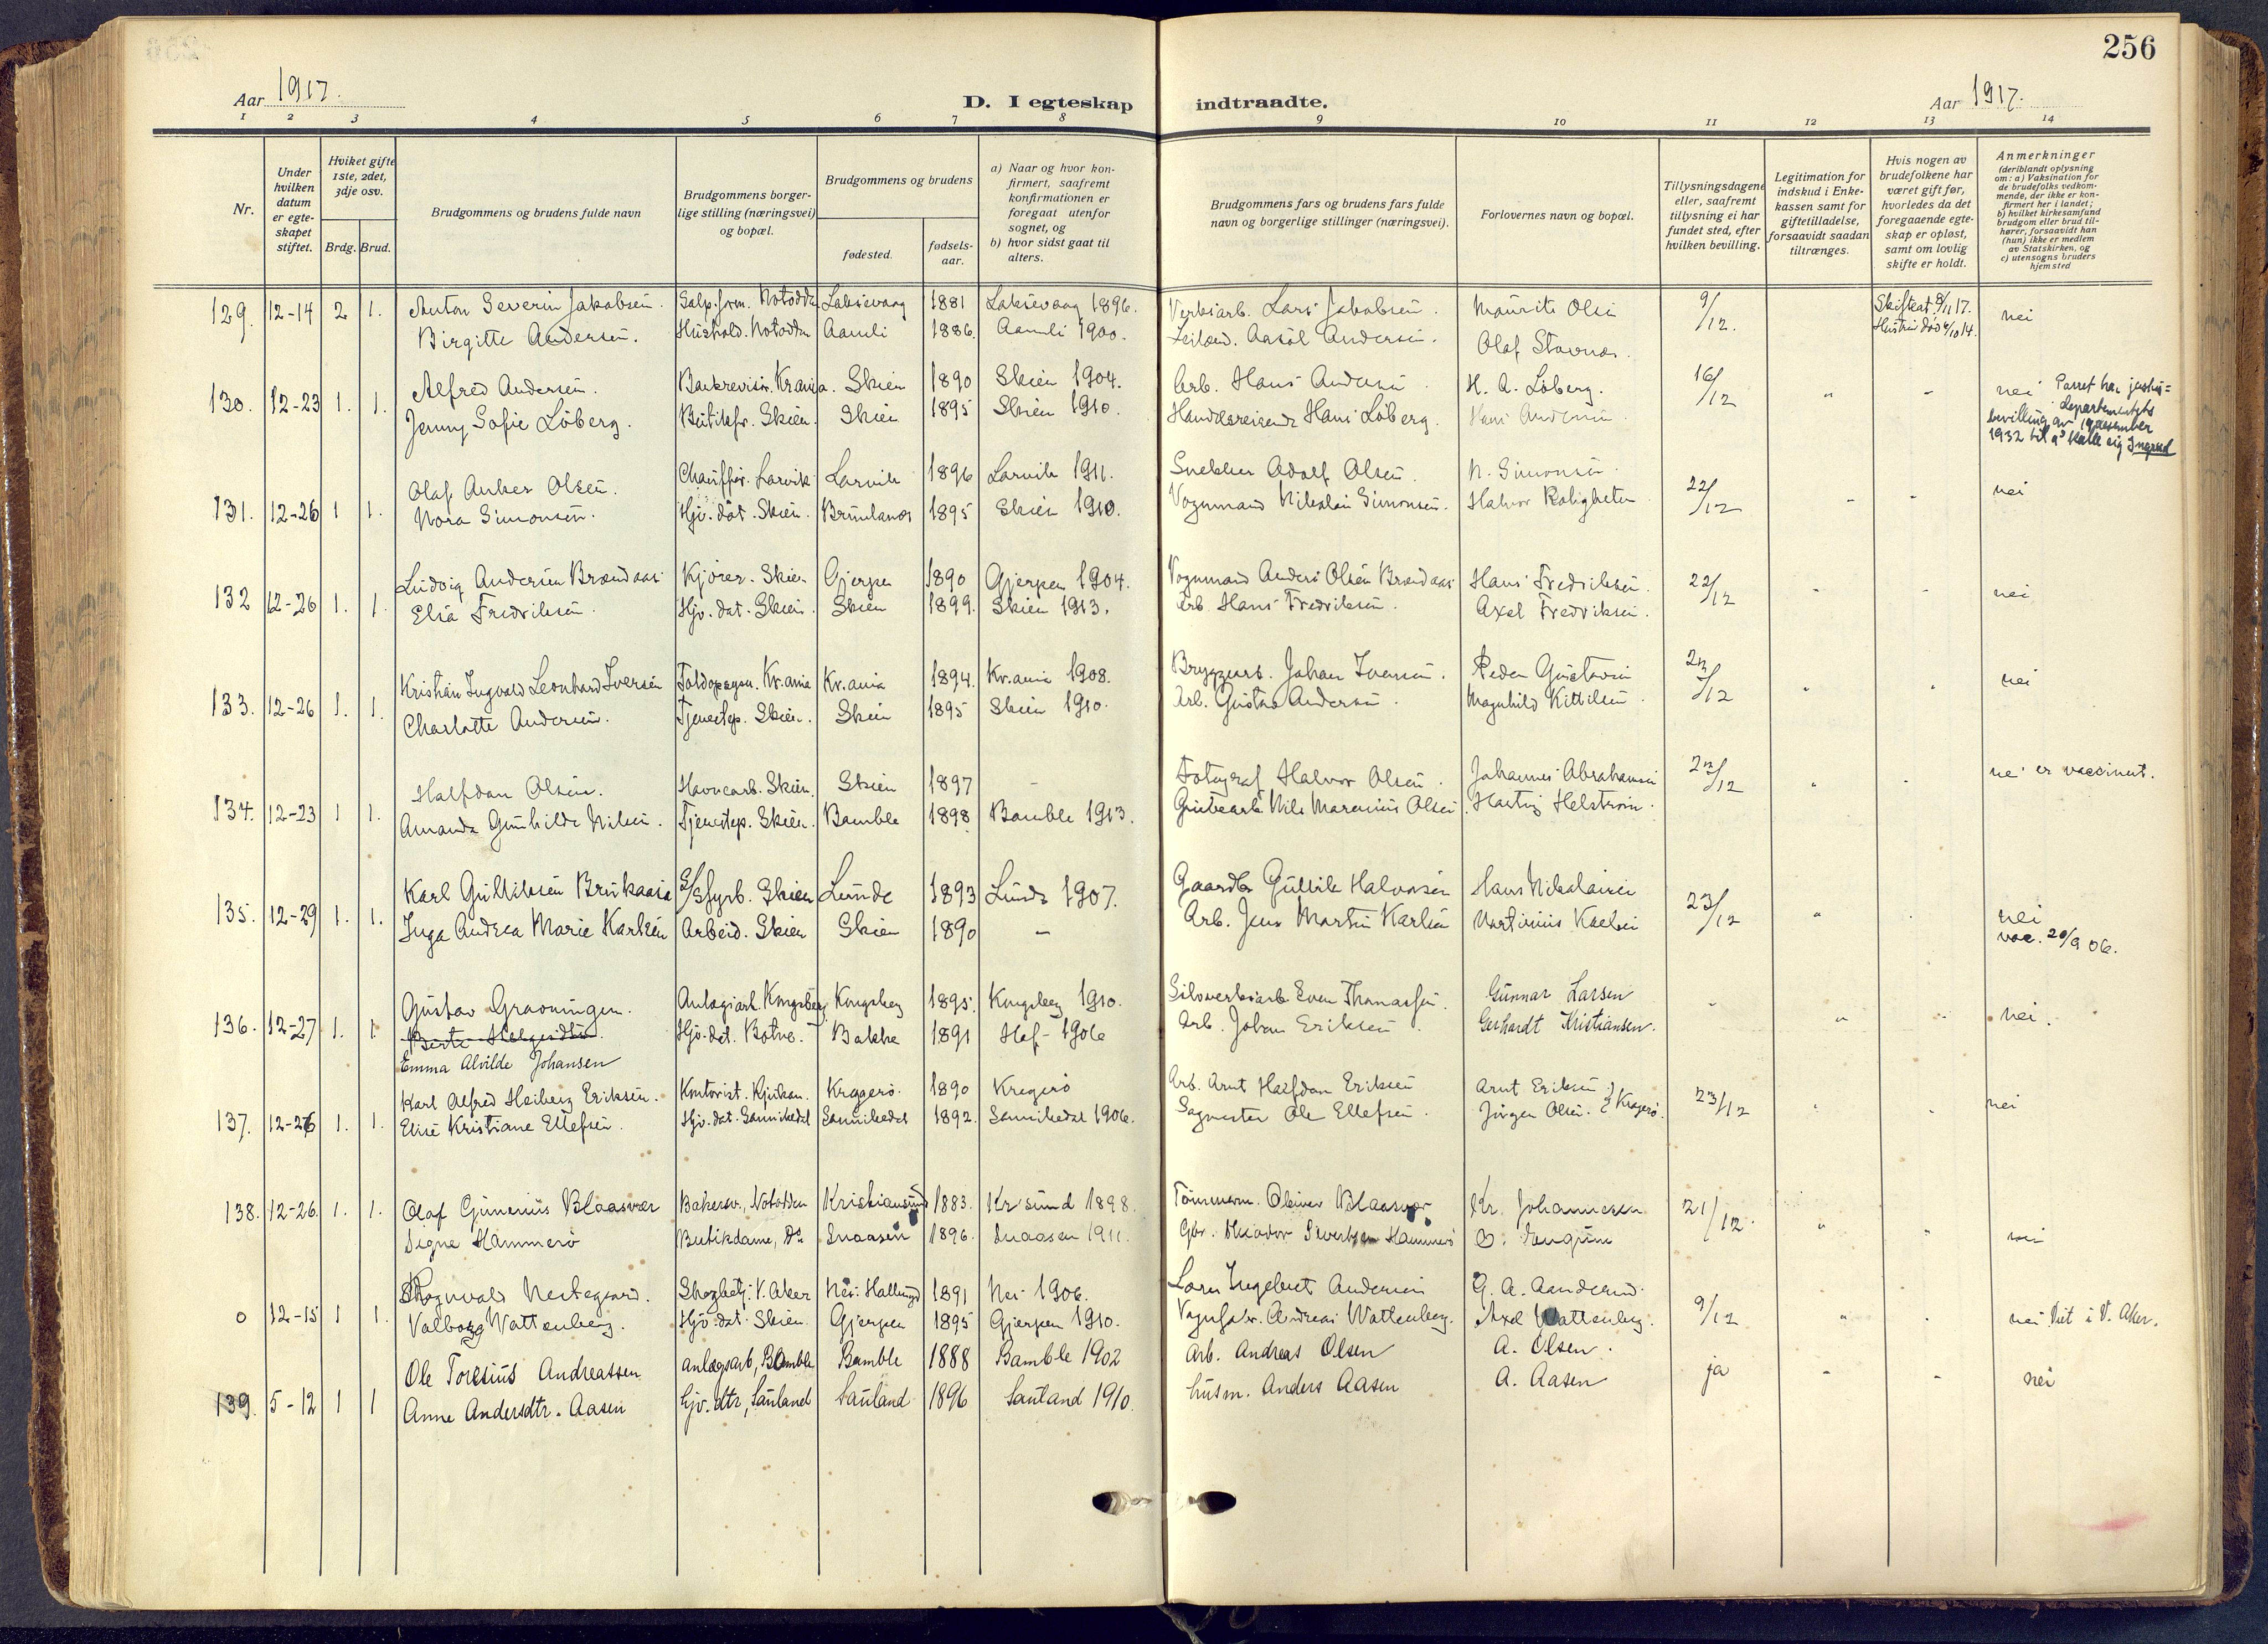 256
Aar 1917.
D. I egteskap indtraadte.
Aar 1917.
1 2 3 4 5 6 7 8 9 10 11 12 13 14
Nr.
Under hvilken datum er egte-skapet stiftet.
Hviket gifte 1ste, 2det, 3dje osv.
Brdg. Brud.
Brudgommens og brudens fulde navn
Brudgommens borger-lige stilling (næringsvei) og bopæl.
Brudgommens og brudens
fødested. fødsels-aar.
a) Naar og hvor kon-firmert, saafremt konfirmationen er foregaat utenfor sognet, og
b) hvor sidst gaat til alters.
Brudgommens fars og brudens fars fulde navn og borgerlige stillinger (næringsvei).
Forlovernes navn og bopæl.
Tillysningsdagene eller, saafremt tillysning ei har fundet sted, efter hvilken bevilling.
Legitimation for indskud i Enke-kassen samt for giftetilladelse, forsaavidt saadan tiltrænges.
Hvis nogen av brudefolkene har været gift før, hvorledes da det foregaaende egte-skap er opløst, samt om lovlig skifte er holdt.
Anmerkninger (deriblandt oplysning om: a) Vaksination for de brudefolks vedkom-mende, der ikke er kon-firmert her i landet; b) hvilket kirkesamfund brudgom eller brud til-hører, forsaavidt han (hun) ikke er medlem av Statskirken, og c) utensogns bruders hjemsted
129. 12-14 2 1. Anton Severin Jakobsen. Salp.form. Notodden Laksevaag 1881 Laksevaag 1896. Verksarb. Lars Jakobsen. Maurits Olsen 9/12. Skifteat. 8/11 17. nei
Birgitte Andersen. Hushold. Notodden Aamli 1886. Aamli 1900. Leilænd. Aasul Andersen. Olaf Stavnes. Hustru død 4/10 14.
130. 12-23 1. 1. Alfred Andersen. Bankrevisor. Krania. Skien 1890 Skien 1904. Arb. Hans Andersen H. A. Löberg. 16/12 " - nei Parret har justis=
Jenny Sofie Löberg. Butikfr. Skien. Skien 1895 Skien 1910. Handelsreisende Hans Löberg. Hans Andersen. departementets
bevilling av 19 desember
1932 til å kalle sig
131. 12-26 1 1. Olaf Anker Olsen. Chauffør. Larvik Larvik 1896 Larvik 1911. Snekker Adolf Olsen. N. Simonsen. 22/12 - - nei
Nora Simonsen. Hjv. dat. Skien. Brunlanes 1895 Skien 1910. Vognmand Nikolai Simonsen. Halvor Roligheten
132 12-26 1. 1. Ludvig Andersen Brændaas Kjörer. Skien Gjerpen 1890 Gjerpen 1904. Vognmand Anders Olsen Brændaas Hans Fredriksen. 22/12 - - nei
Elsa Fredriksen. Hjv. dat. Skien. Skien 1899. Skien 1913. Arb. Hans Fredriksen. Axel Fredriksen.
133. 12-26 1. 1. Kristian Ingvald Leonhard Iversen Toldopsyn. Kr.ania Kr.ania 1894. Kr.ania 1908. Bryggearb. Johan Iversen. Peder Gustavsen 23/12 " - nei
Charlotte Andersen. Tjenestep. Skien. Skien 1895 Skien 1910. Arb. Gustav Andersen. Magnhild Kittilsen.
134. 12-23 1 1. Halfdan Olsen. Havnearb. Skien. Skien 1897 - Fotograf Halvor Olsen. Johannes Abrahamsen 23/12 " - nei er vaccinert.
Amanda Gunhilde Nilsen. Tjenestep. Skien. Bamble 1898 Bamble 1913. Grubearb. Nils Marenius Olsen. Hartvig Helstrøm.
135. 12-29 1. 1. Karl Gulliksen Brukaasa S/S fyrb. Skien Lunde 1893 Lunde 1907. Gaardbr. Gullik Halvorsen Hans Nikolaisen 23/12 " - nei
Inga Andrea Marie Karlsen Arbeid. Skien Skien 1890 - Arb. Jens Martin Karlsen Martinius Karlsen vac. 20/9 06.
136. 12-27 1. 1. Gustav Graaningen. Anlægsarb. Kongsberg Kongsberg 1895. Kongsberg 1910. Sölvverksarb. Even Thomassen. Gunnar Larsen - " - nei.
Berte Helgesdtr. Hjv. dat. Botne. Bakke 1891 Hof - 1906 Arb. Johan Eriksen. Gerhardt Kristiansen.
Emma Alvilde Johansen
137. 12-26 1. 1. Karl Alfred Heiberg Eriksen. Kontorist. Rjukan. Kragerö. 1890 Kragerö Arb. Arnt Halfdan Eriksen Arnt Eriksen } Kragerö. 23/12 - - nei
Elise Kristiane Ellefsen. Hjv. dat. Sannikedal Sannikedal 1892. Sannikedal 1906. Sagmester Ole Ellefsen. Jörgen Olsen.
138. 12-26. 1. 1. Olaf Gunerius Blaasvær Bakersv., Notodden Kristiansund 1883. Kr sund 1898. Tömmerm. Oliver Blaasvær Kr. Johannesen 21/12. " - nei
Signe Hammerö Butikdame, Do. Snaasen 1896. Snaasen 1911. Gbr. Meador Sivertsen Hammerö
0 12-15 1 1. Ragnvald Nestegaard. Skogbetj. V. Aker Nes. Hallingd 1891 Nes 1906. Lars Ingebret Andersen G. A. Aanderud. 9/12 " - nei Viet i V. Aker.
Valborg Wattenberg. Hjv. dat. Skien. Gjerpen 1895 Gjerpen 1910. Vognfabr. Andreas Wattenberg. Axel Wattenberg.
139. 5-12 1 1 Ole Toresius Andreassen anlægsarb, Bamble Bamble 1888 Bamble 1902 Arb. Andreas Olsen A. Olsen. ja - - nei
Anne Andersdtr. Aasen hjv. dtr, Sauland Sauland 1896 Sauland 1910. husm. Anders Aasen A. Aasen